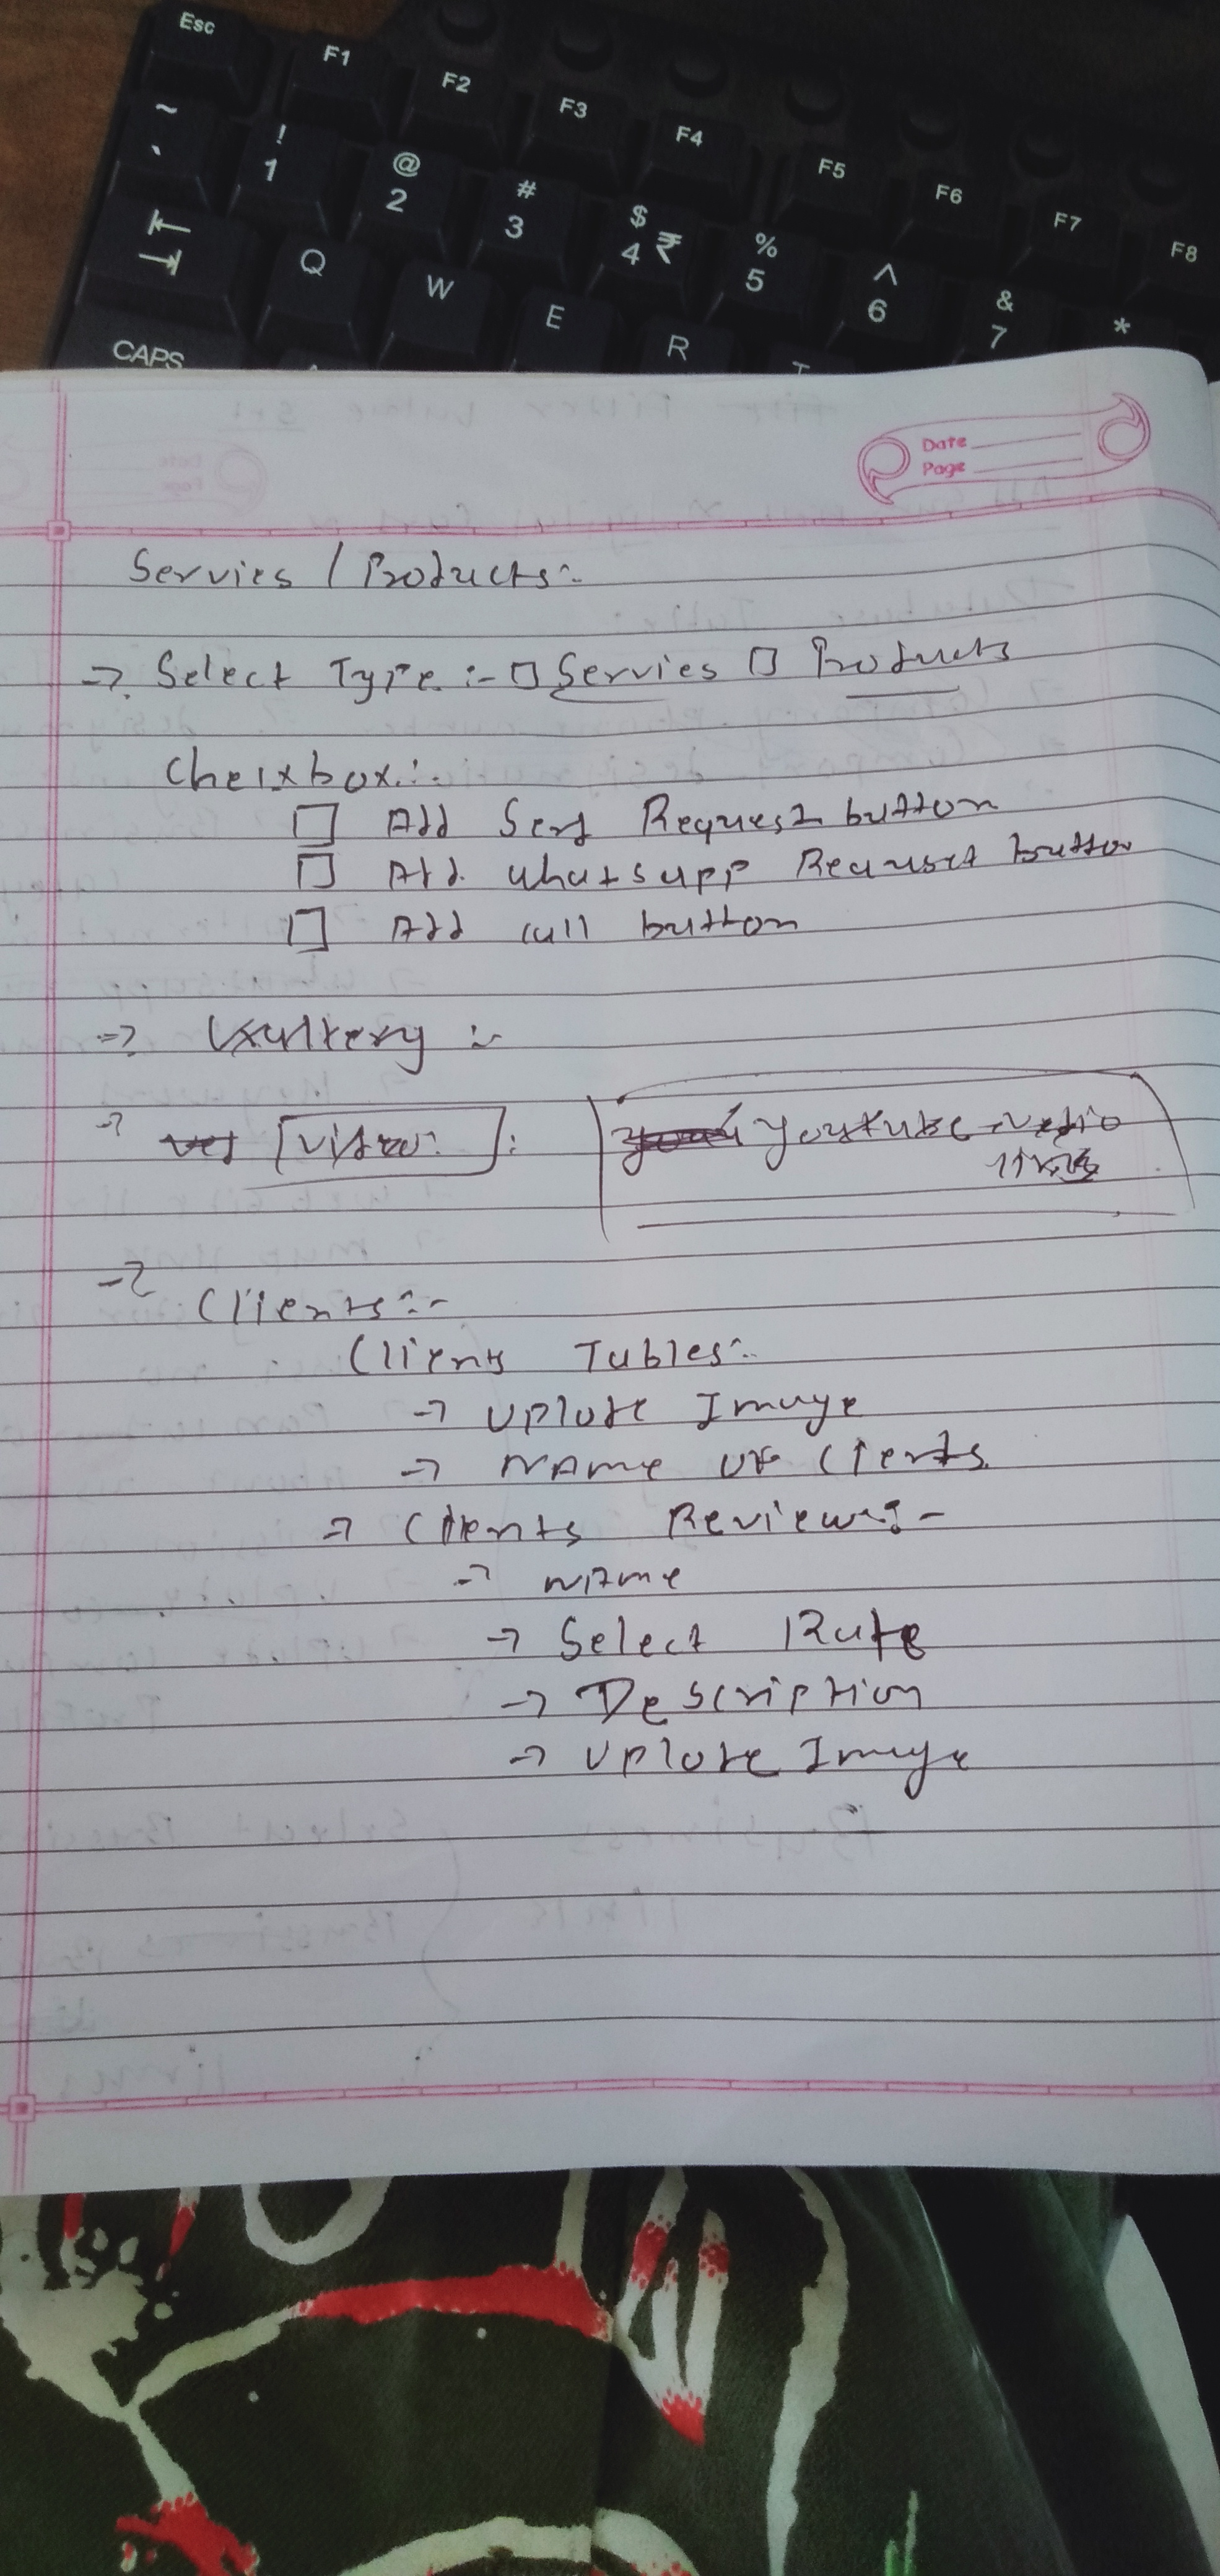 Esc F1 F2 F3 F4 F5 F6 F7 F8
~ ` ! 1 @ 2 # 3 $ 4 ₹ % 5 ^ 6 & 7 *
Q W E R T
CAPS
Date
Page
Servies / Products:-
→ Select Type :- □ Servies □ Products
Checkbox:-
□ Add Send Request button
□ Add whatsapp Request button
□ Add call button
→ Gallery :-
→ Video : Youtube vedio
link
→ Clients:-
Clients Tables:-
→ Uplode Image
→ Name of Clients
→ Clients Review:-
→ Name
→ Select Rate
→ Description
→ Uplode Image